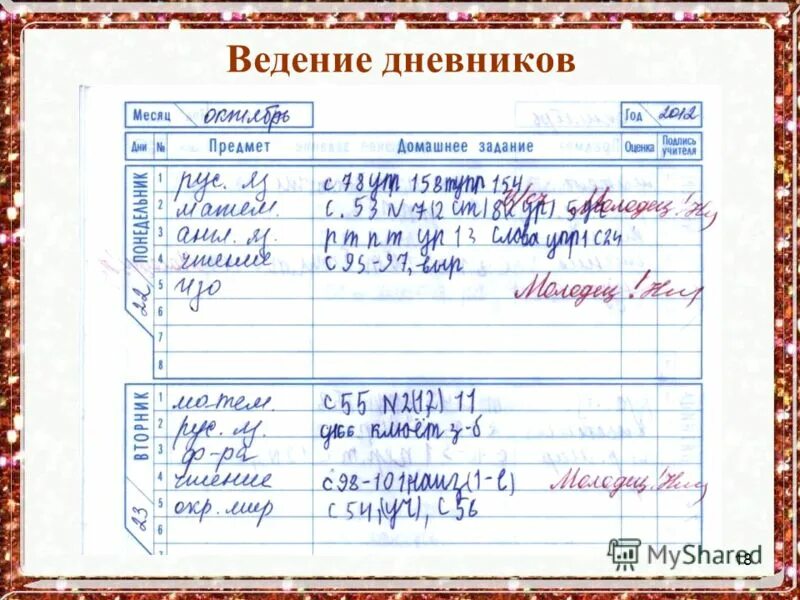 Ведение дневников
Месяц октябрь Год 2012
Дни № Предмет Домашнее задание Оценка Подпись учителя
ПОНЕДЕЛЬНИК 22
1 рус. яз с 78 упр 158 154
2 матем. с. 53 N 7(2 ст) 8(2 ур) Молодец!
3 англ. яз. рт пт ур 13 слова упр 1 с 24
4 чтение с 95-97, выр
5 изо Молодец!
6
7
8
ВТОРНИК 23
1 матем. с 55 N2(12) 11
2 рус. яз. клюёт з-б
3 ф-ра
4 чтение с 98-101, наиз (1-е) Молодец!
5 окр. мир с 54, (уч), с 56
6
MyShared
18